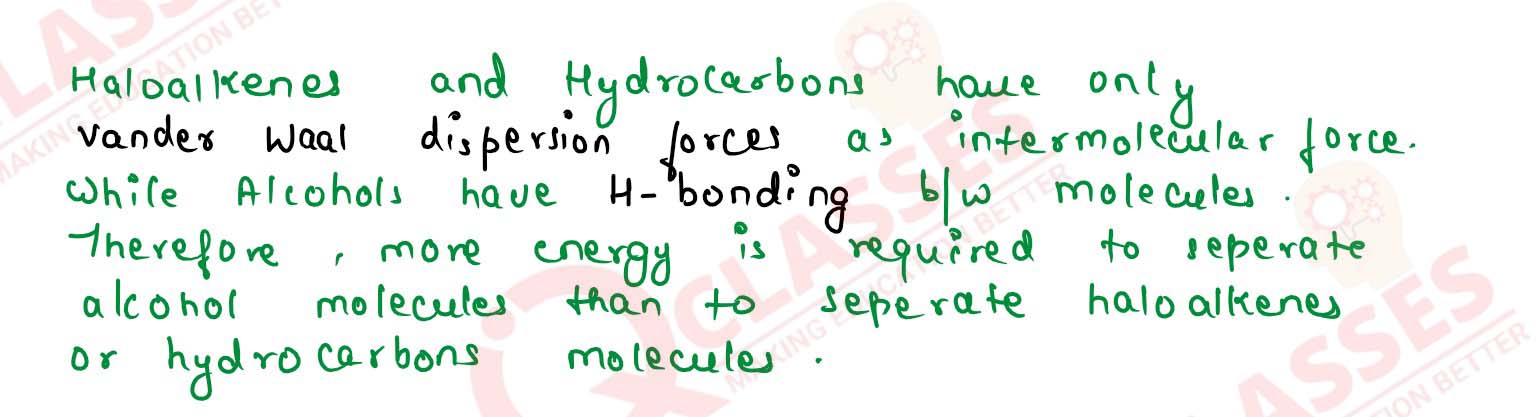 Haloalkenes and Hydrocarbons have only
vander waal dispersion forces as intermolecular force.
while Alcohols have H-bonding b/w molecules.
Therefore, more energy is required to seperate
alcohol molecules than to seperate haloalkenes
or hydrocarbons molecules.
CLASSES
MAKING EDUCATION BETTER